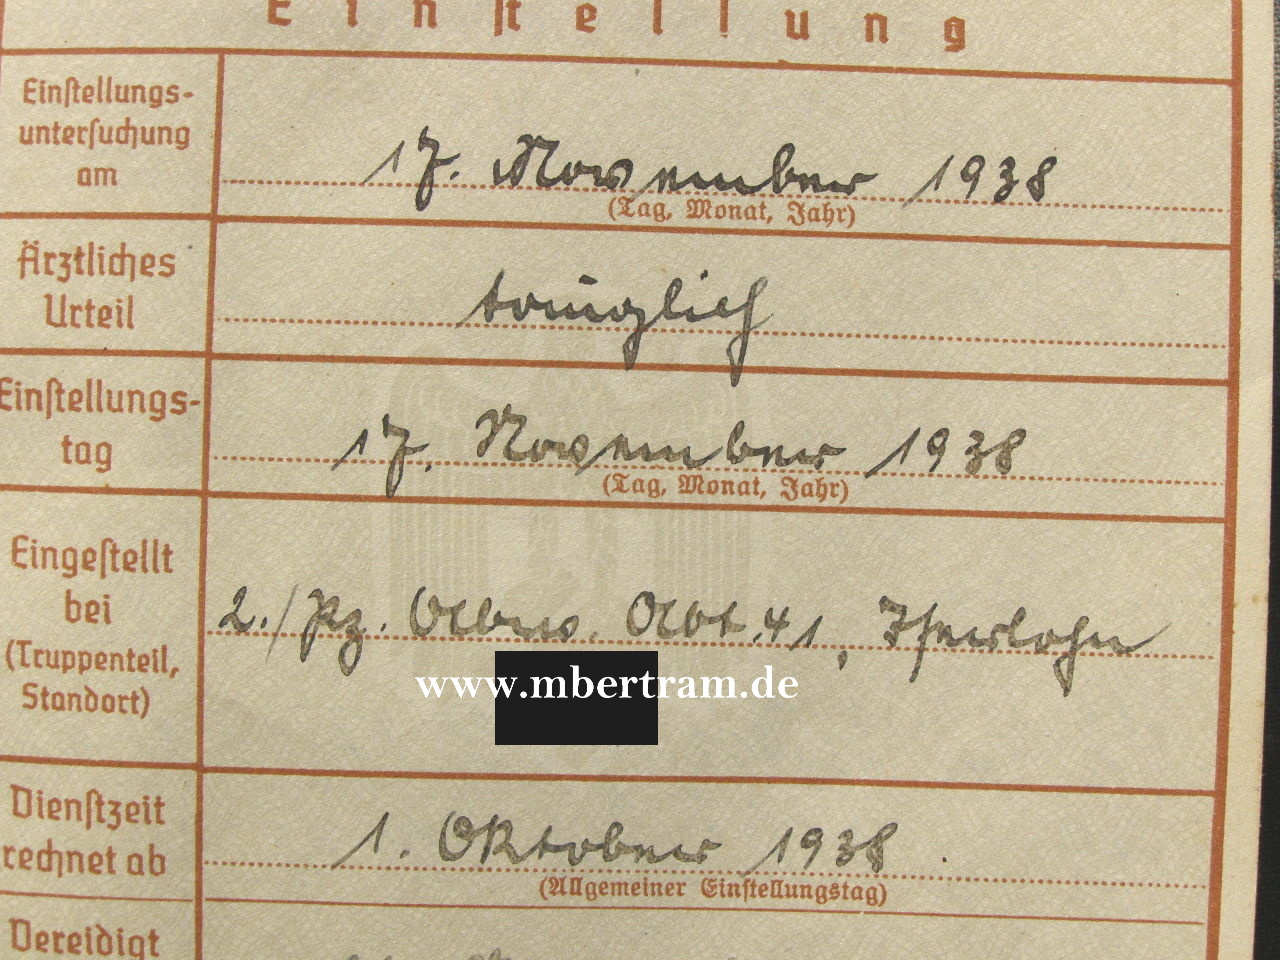 Einstellung
Einstellungs-
untersuchung
am
17. November 1938
(Tag, Monat, Jahr)
Ärztliches
Urteil
tauglich
Einstellungs-
tag
17. November 1938
(Tag, Monat, Jahr)
Eingestellt
bei
(Truppenteil,
Standort)
2./Pz. Abw. Abt. 41, Iserlohn
www.mbertram.de
Dienstzeit
rechnet ab
1. Oktober 1938.
(Allgemeiner Einstellungstag)
Vereidigt